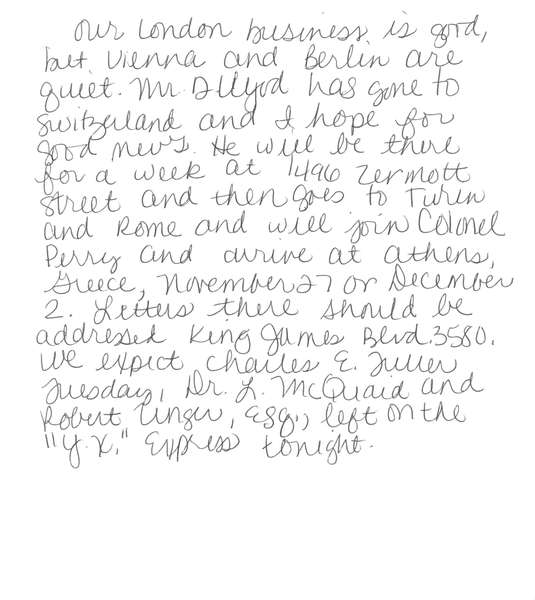 Our London business is good,
but Vienna and Berlin are
quiet. Mr. D Llyod has gone to
Switzerland and I hope for
good news. He will be there
for a week at 1496 Zermott
Street and then goes to Turin
and Rome and will join Colonel
Perry and arrive at Athens,
Greece, November 27 or December
2. Letters there should be
addressed King James Blvd. 3580.
We expect Charles E. Fuller
Tuesday, Dr. L. McQuaid and
Robert Unger, Esq., left on the
"Y.X." Express tonight.